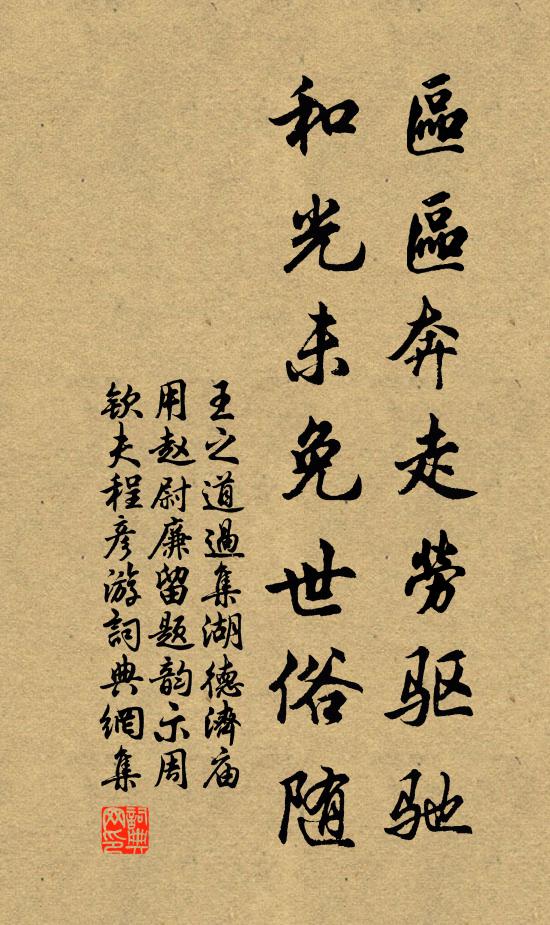 區區奔走勞驱驰
和光未免世俗随
王之道過集湖德濟庙
用赵尉廉留题韵示周
欽夫程彦游詞典網集
詞典網印